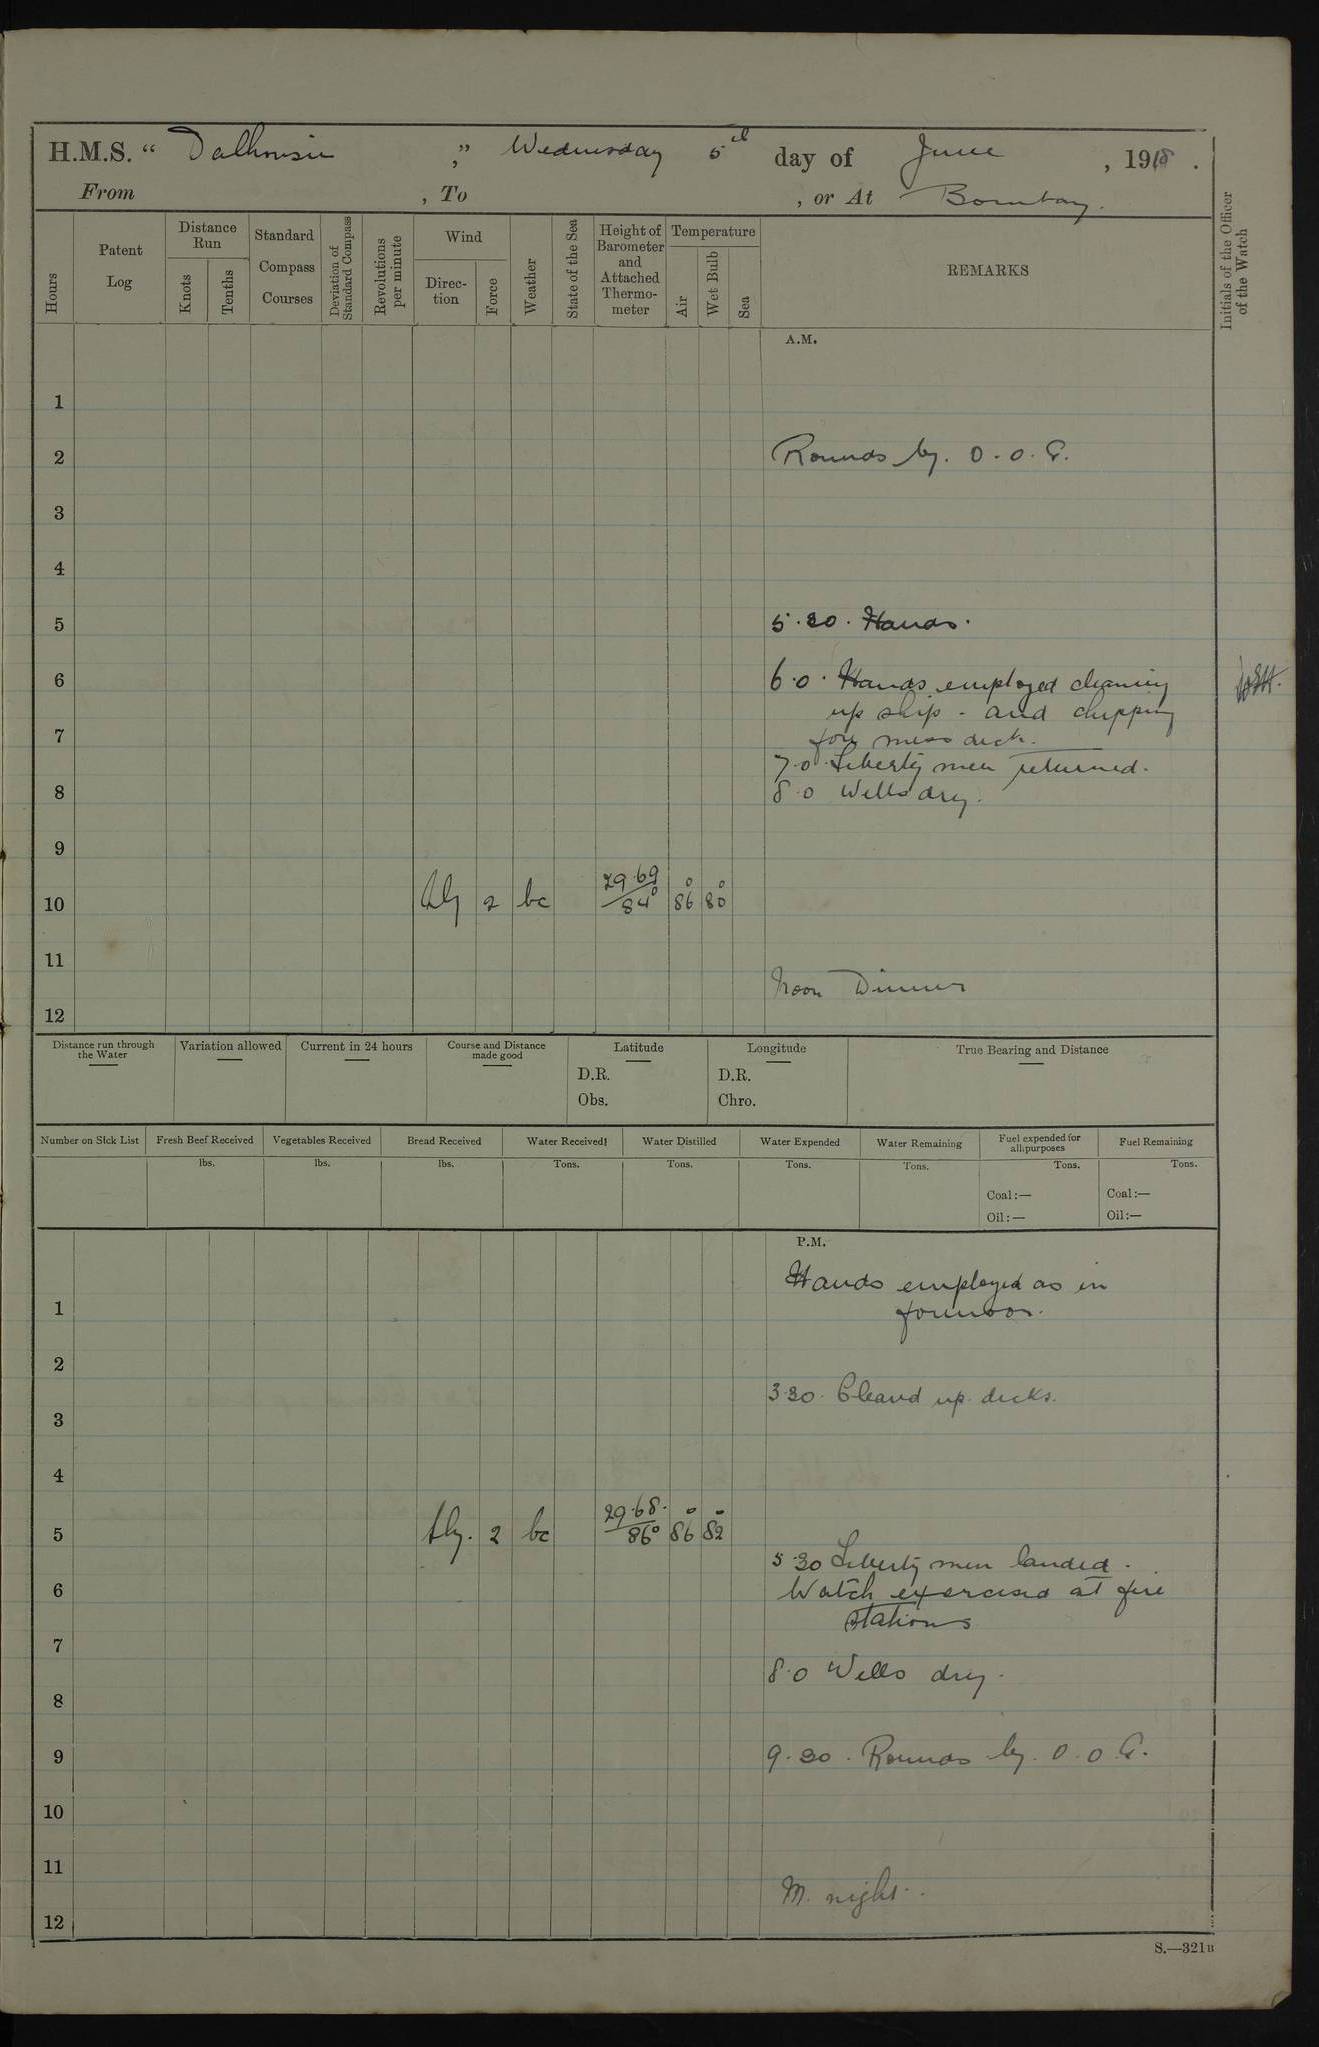 H.M.S. “ Dalhousie ,” Wednesday 5th day of June , 1918 .
From , To , or At Bombay.
Hours
Patent Log
Distance Run
Knots
Tenths
Standard Compass Courses
Deviation of Standard Compass
Revolutions per minute
Wind
Direction
Force
Weather
State of the Sea
Height of Barometer and Attached Thermometer
Temperature
Air
Wet Bulb
Sea
REMARKS
Initials of the Officer of the Watch
A.M.
1
2 Rounds by. O.O.G.
3
4
5 5.30. Hands.
6 6.0. Hands employed cleaning
up ship - and chipping
7 fore mess deck.
7.0. Liberty men returned.
8 8.0 Wells dry.
9
10 2 bc 29.69 / 84° 86° 80°
11
Noon Dinner
12
Distance run through the Water
Variation allowed
Current in 24 hours
Course and Distance made good
Latitude
D.R.
Obs.
Longitude
D.R.
Chro.
True Bearing and Distance
Number on Sick List
Fresh Beef Received
lbs.
Vegetables Received
lbs.
Bread Received
lbs.
Water Received
Tons.
Water Distilled
Tons.
Water Expended
Tons.
Water Remaining
Tons.
Fuel expended for all purposes
Tons.
Coal:—
Oil:—
Fuel Remaining
Tons.
Coal:—
Oil:—
P.M.
Hands employed as in
1 forenoon.
2
3.30. Cleand up decks.
3
4
5 2 bc 29.68. / 86° 86° 82°
5.30 Liberty men landed.
6 Watch exercised at fire
stations
7
8.0 Wells dry.
8
9 9.30. Rounds by. O.O.G.
10
11
M. night.
12
S.—321B